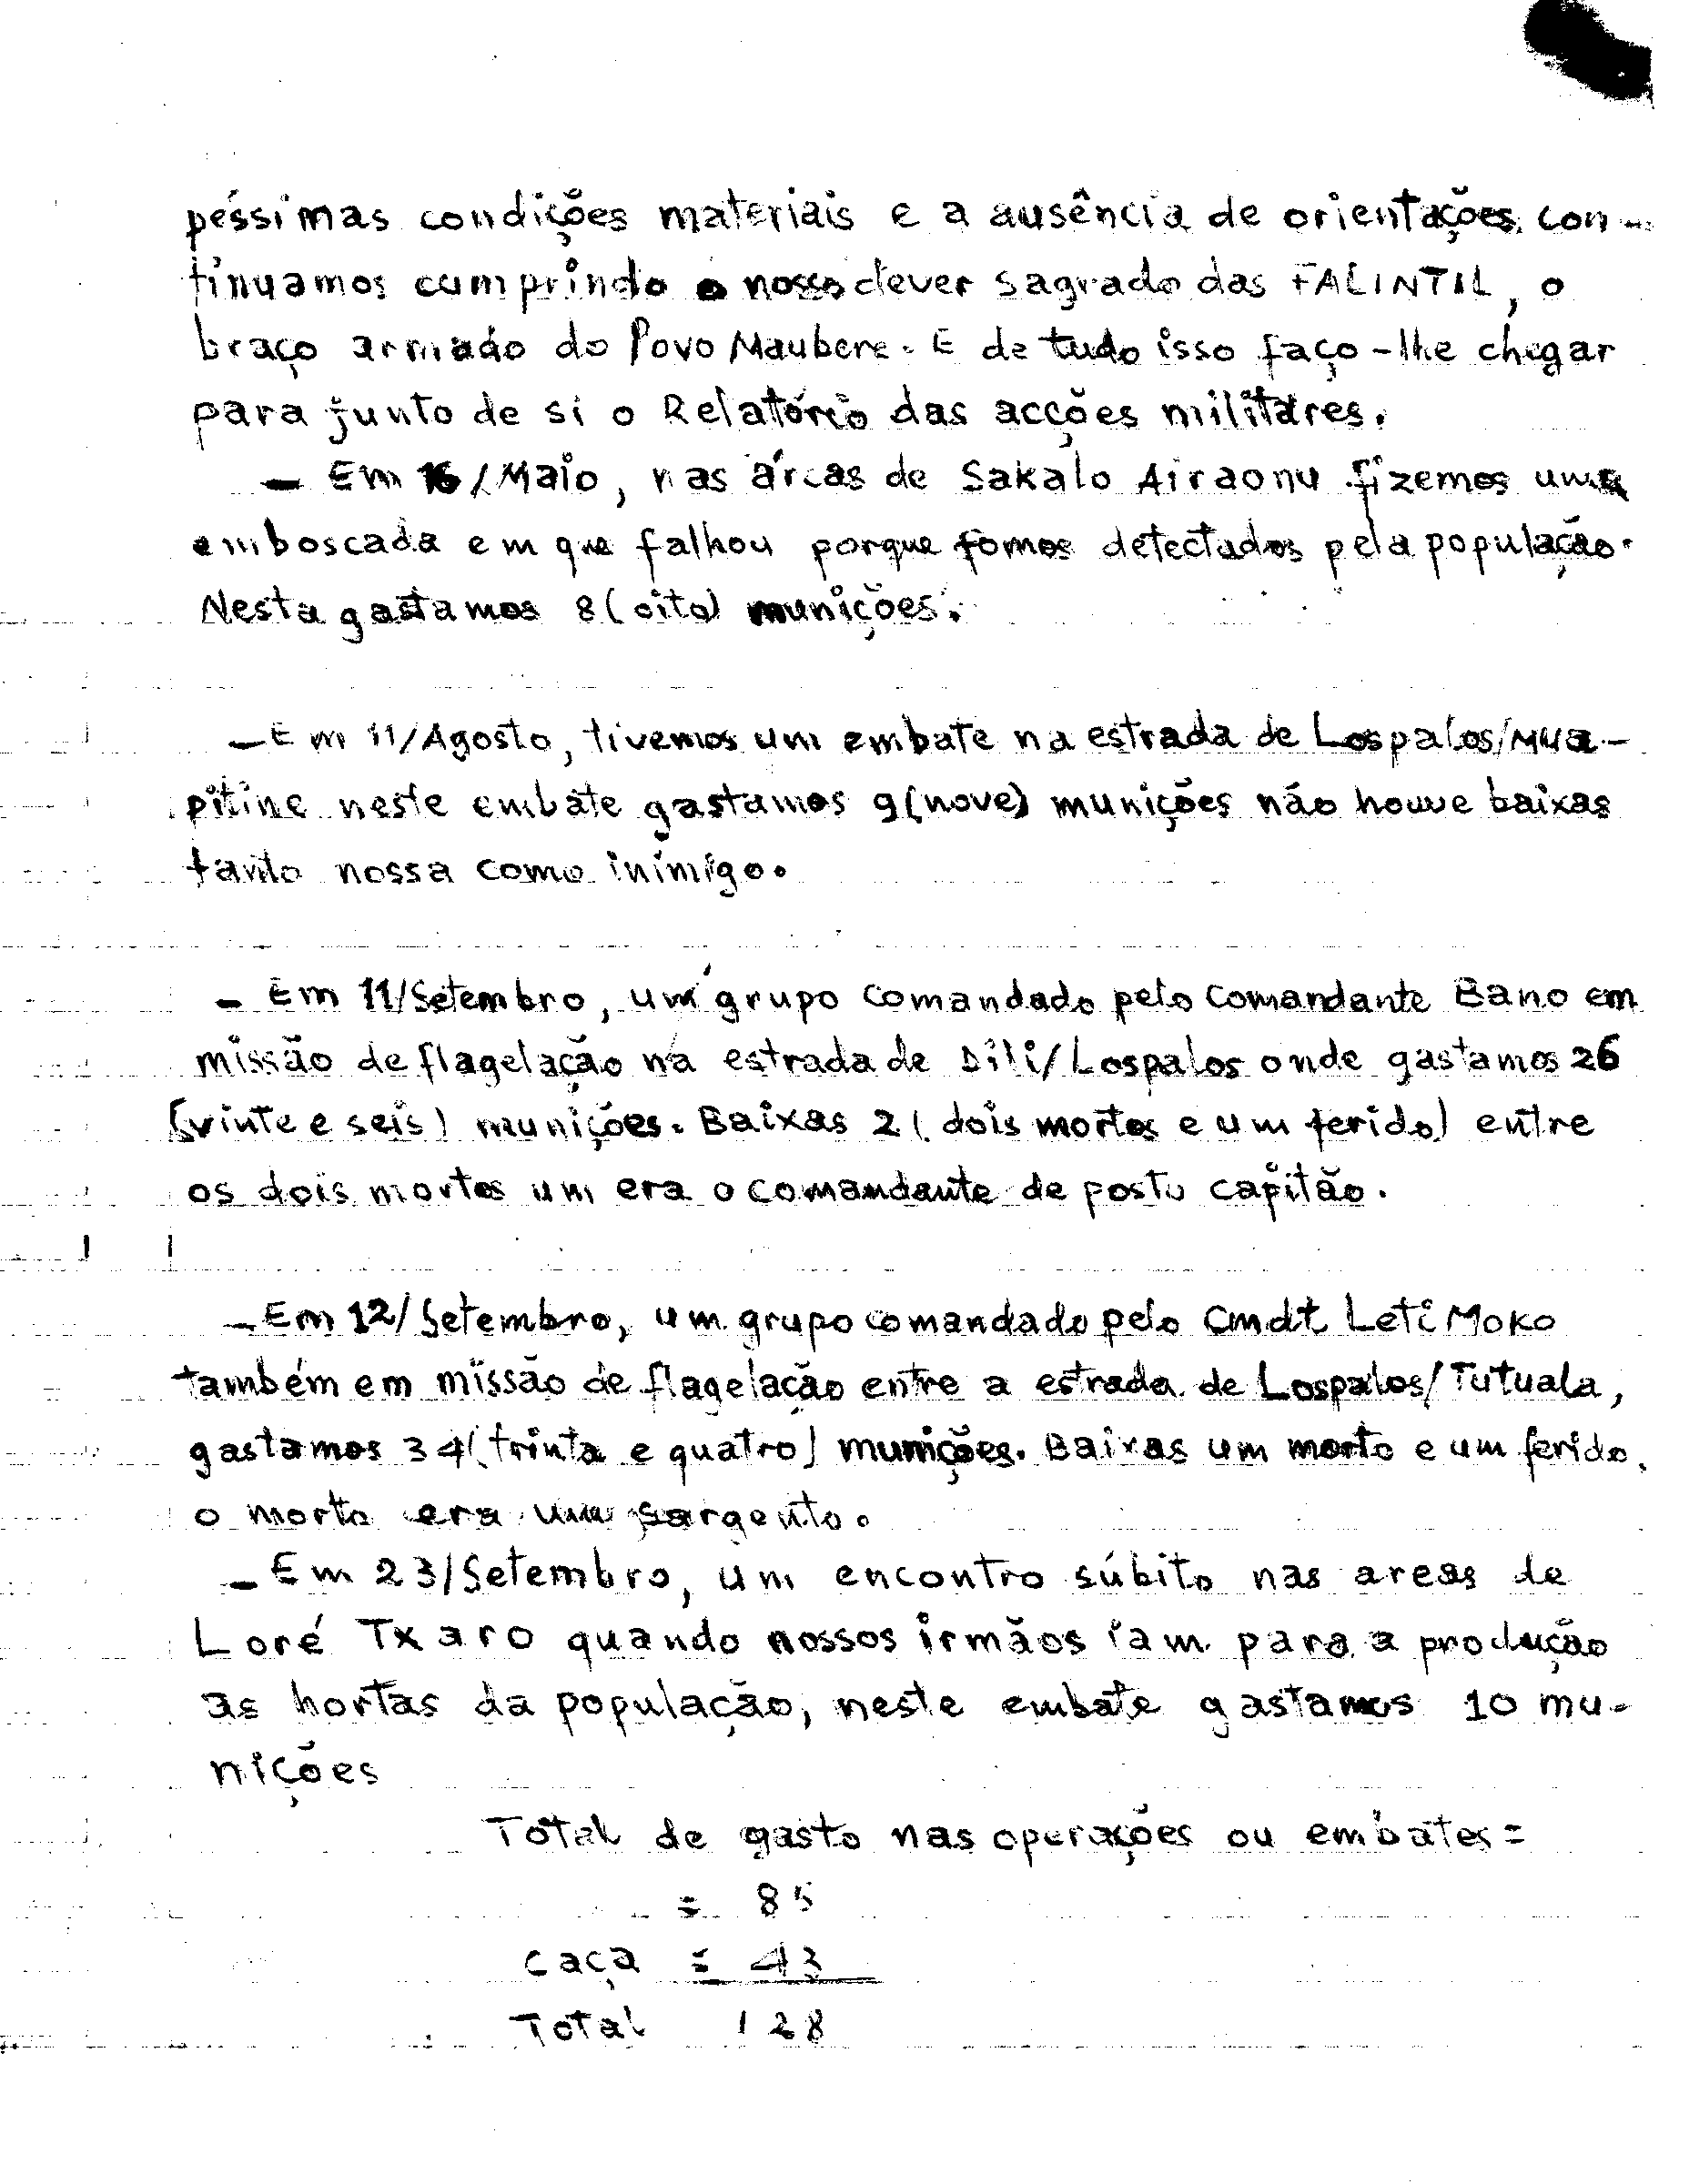 péssimas condições materiais e a ausência de orientações con-
tinuamos cumprindo o nosso dever sagrado das FALINTIL, o
braço armado do Povo Maubere. E de tudo isso faço-lhe chegar
para junto de si o Relatório das acções militares.
- Em 16/Maio, nas áreas de Sakalo Airaonu fizemos uma
emboscada em que falhou porque fomos detectados pela população.
Nesta gastamos 8 (oito) munições.
- Em 11/Agosto, tivemos um embate na estrada de Lospalos/Mua-
pitine neste embate gastamos 9 (nove) munições não houve baixas
tanto nossa como inimigo.
- Em 11/Setembro, um grupo comandado pelo Comandante Bano em
missão de flagelação na estrada de Dili/Lospalos onde gastamos 26
(vinte e seis) munições. Baixas 2 (dois mortos e um ferido) entre
os dois mortos um era o comandante de posto capitão.
- Em 12/Setembro, um grupo comandado pelo Cmdt Leti Moko
também em missão de flagelação entre a estrada de Lospalos/Tutuala,
gastamos 34 (trinta e quatro) munições. Baixas um morto e um ferido.
o morto era um sargento.
- Em 23/Setembro, um encontro súbito nas areas de
Loré Txaro quando nossos irmãos iam para a produção
as hortas da população, neste embate gastamos 10 mu-
nições
Total de gasto nas operações ou embates =
= 85
caça = 43
Total 128